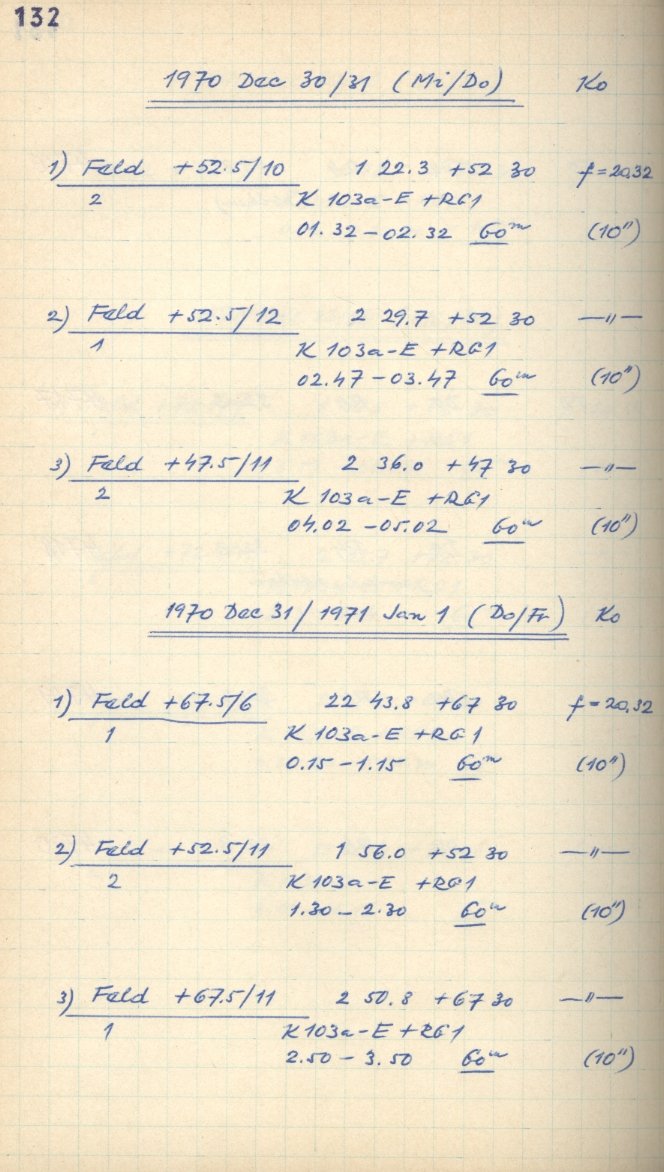 132
1970 Dec 30/31 (Mi/Do) Ko
1) Feld +52.5/10 1 22.3 +52 30 f=20.32
2 K 103a-E +RG1
01.32–02.32 60m (10")
2) Feld +52.5/12 2 29.7 +52 30 —"—
1 K 103a-E +RG1
02.47–03.47 60m (10")
3) Feld +47.5/11 2 36.0 +47 30 —"—
2 K 103a-E +RG1
04.02–05.02 60m (10")
1970 Dec 31/1971 Jan 1 (Do/Fr) Ko
1) Feld +67.5/6 22 43.8 +67 30 f=20.32
1 K 103a-E +RG1
0.15–1.15 60m (10")
2) Feld +52.5/11 1 56.0 +52 30 —"—
2 K 103a-E +RG1
1.30–2.30 60m (10")
3) Feld +67.5/11 2 50.8 +67 30 —"—
1 K 103a-E +RG1
2.50–3.50 60m (10")